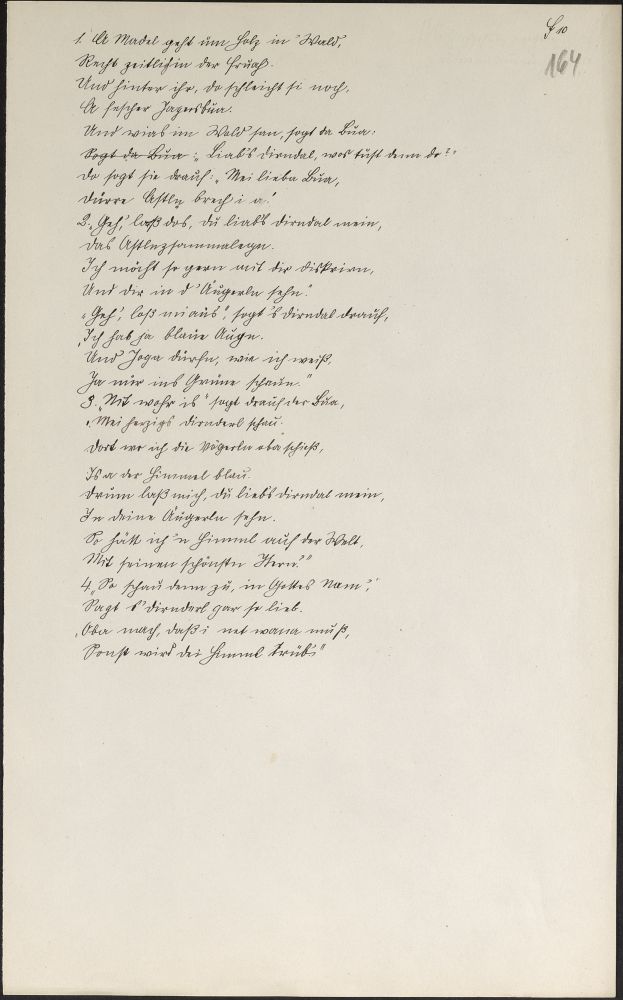 F 10
164
1. A Madel geht um Holz in Wald,
Recht zeitlich in der Fruah.
Und hinter ihr, do schleicht si noch,
A fescher Jagersbua.
Und wias im Wold san, sogt da Bua:
Sogt da Bua: Liab's Dirndal, wos tust denn do?"
Do sogt sie drauf: "Mei lieba Bua,
Dürre Astln brech i a."
2. "Geh', laß dos, du liab's Dirndal mein,
Das Astlnzsammalegn.
Ich möcht so gern mit dir diskrirn,
Und dir in d' Äugerln sehn."
"Geh', loß mi aus", sogt 's Dirndal drauf,
"Ich hab ja blaue Augn.
Und Joga dürfn, wie ich weiß,
Ja nur ins Grüne schaun."
3. "Nit wohr is" sogt drauf der Bua,
"Mei herzigs Dirnderl schau.
Dort wo ich die Vögerln oba schieß,
Is a der Himmel blau.
Drum laß mich, du liebs Dirndal mein,
In deine Äugerln sehn.
So hätt ich 'n Himml auf der Welt,
Mit seinen schönstn Stern."
4. "So schau denn zu, in Gottes Nam",
Sagt 's Dirnderl gar so lieb.
"Oba mach, daß i net wana muß,
Sonst wird dei Himml trüb."